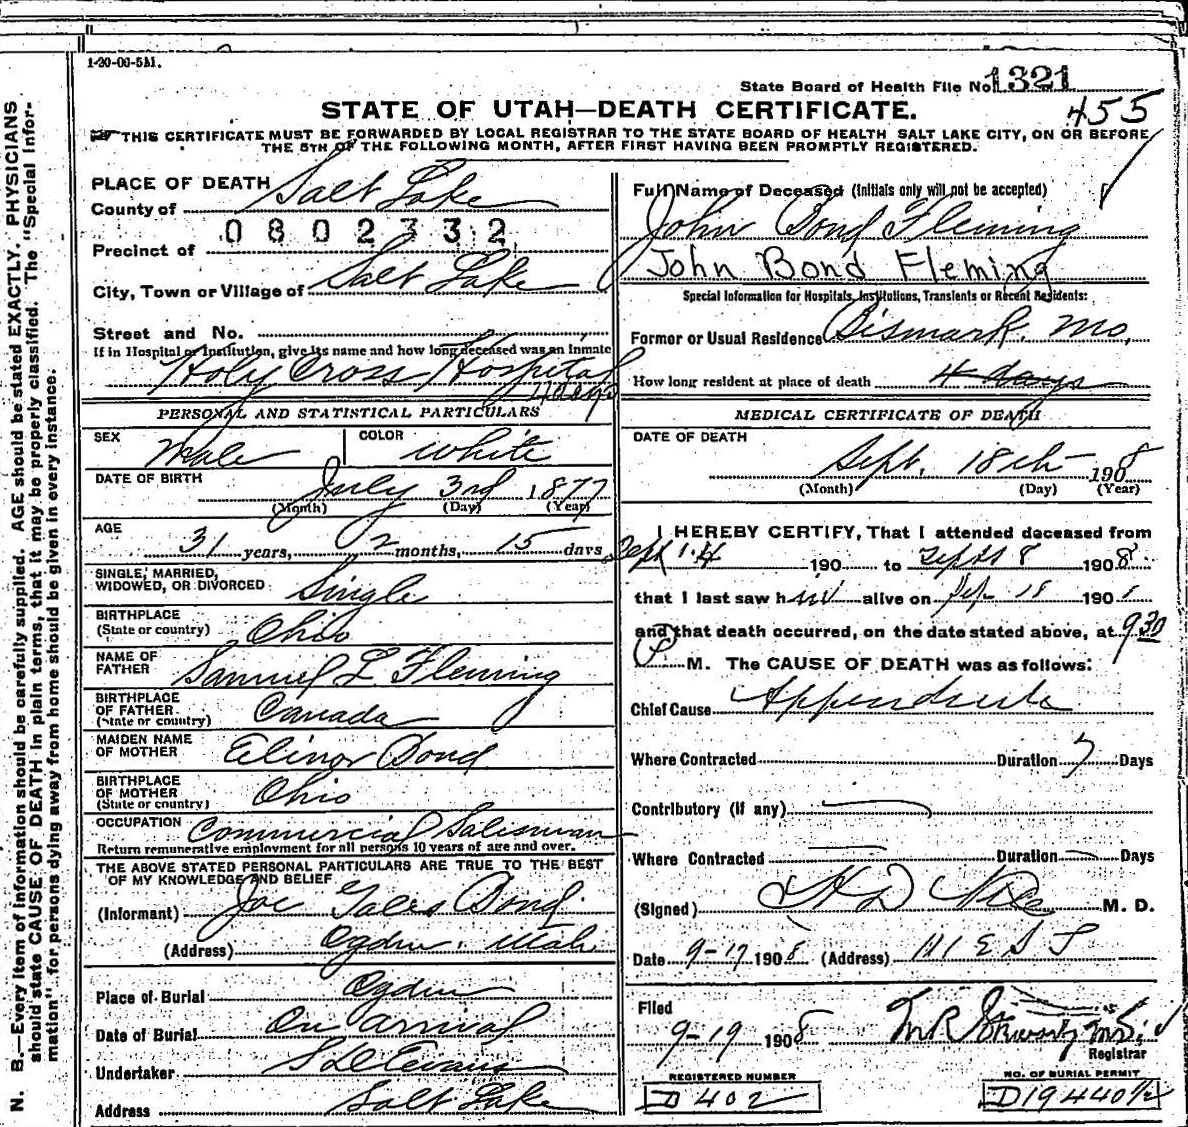 1-20-06-5M.
State Board of Health File No. 1321
455
STATE OF UTAH—DEATH CERTIFICATE.
THIS CERTIFICATE MUST BE FORWARDED BY LOCAL REGISTRAR TO THE STATE BOARD OF HEALTH SALT LAKE CITY, ON OR BEFORE
THE 5TH OF THE FOLLOWING MONTH, AFTER FIRST HAVING BEEN PROMPTLY REGISTERED.
N. B.—Every item of information should be carefully supplied. AGE should be stated EXACTLY. PHYSICIANS
should state CAUSE OF DEATH in plain terms, that it may be properly classified. The "Special Infor-
mation" for persons dying away from home should be given in every instance.
PLACE OF DEATH
County of Salt Lake
0802332
Precinct of
City, Town or Village of Salt Lake
Street and No.
If in Hospital or Institution, give its name and how long deceased was an inmate
Holy Cross Hospital
4 days
PERSONAL AND STATISTICAL PARTICULARS
SEX Male COLOR White
DATE OF BIRTH July 3rd 1877
(Month) (Day) (Year)
AGE 31 years, 2 months, 15 days
SINGLE, MARRIED,
WIDOWED, OR DIVORCED Single
BIRTHPLACE
(State or country) Ohio
NAME OF
FATHER Samuel L. Fleming
BIRTHPLACE
OF FATHER
(State or country) Canada
MAIDEN NAME
OF MOTHER Elinor Bond
BIRTHPLACE
OF MOTHER
(State or country) Ohio
OCCUPATION Commercial Salesman
Return remunerative employment for all persons 10 years of age and over.
THE ABOVE STATED PERSONAL PARTICULARS ARE TRUE TO THE BEST
OF MY KNOWLEDGE AND BELIEF
(Informant) Joe Gales Bond
(Address) Ogden, Utah
Place of Burial Ogden
Date of Burial On arrival
Undertaker S D Evans
Address Salt Lake
Full Name of Deceased (Initials only will not be accepted)
John Bond Fleming
John Bond Fleming
Special Information for Hospitals, Institutions, Transients or Recent Residents:
Former or Usual Residence Bismark, Mo,
How long resident at place of death 4 days
MEDICAL CERTIFICATE OF DEATH
DATE OF DEATH
Sept. 18th 1908
(Month) (Day) (Year)
I HEREBY CERTIFY, That I attended deceased from
Sept 14 190 to Sept 18 1908
that I last saw him alive on Sep 18 1908
and that death occurred, on the date stated above, at 9 30
P M. The CAUSE OF DEATH was as follows:
Chief Cause Appendicitis
Where Contracted Duration 7 Days
Contributory (if any)
Where Contracted Duration Days
(Signed) H D Niles M. D.
Date 9-17 1908 (Address) 111 E S T
Filed
9-19 1908
Registrar
REGISTERED NUMBER
D 402
NO. OF BURIAL PERMIT
D19440½